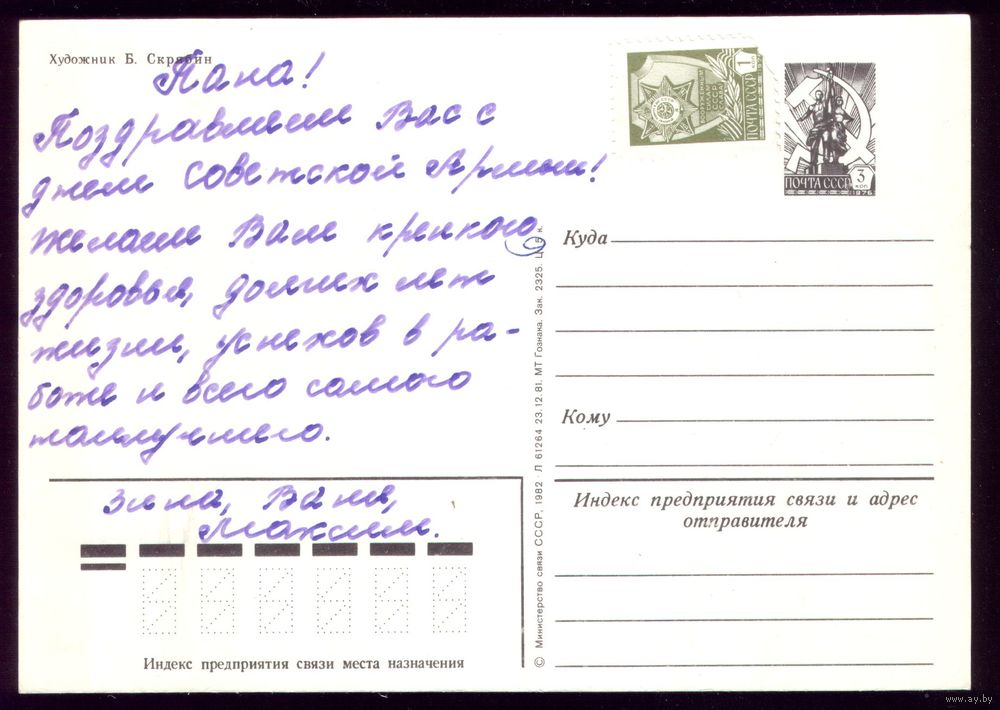 Художник Б. Скрябин
Папа!
Поздравляем Вас с
днем Советской Армии!
Желаем Вам крепкого
здоровья, долгих лет
жизни, успехов в ра-
боте и всего самого
наилучшего.
Зина, Ваня,
Максим.
Индекс предприятия связи места назначения
© Министерство связи СССР, 1982 · Л 61264 23.12.81. МТ Гознака. Зак. 2325. Ц. 5 к.
1
КОП
ПОЧТА СССР
ПОЧТА СССР
3
КОП
1976
Куда
Кому
Индекс предприятия связи и адрес
отправителя
www.ay.by